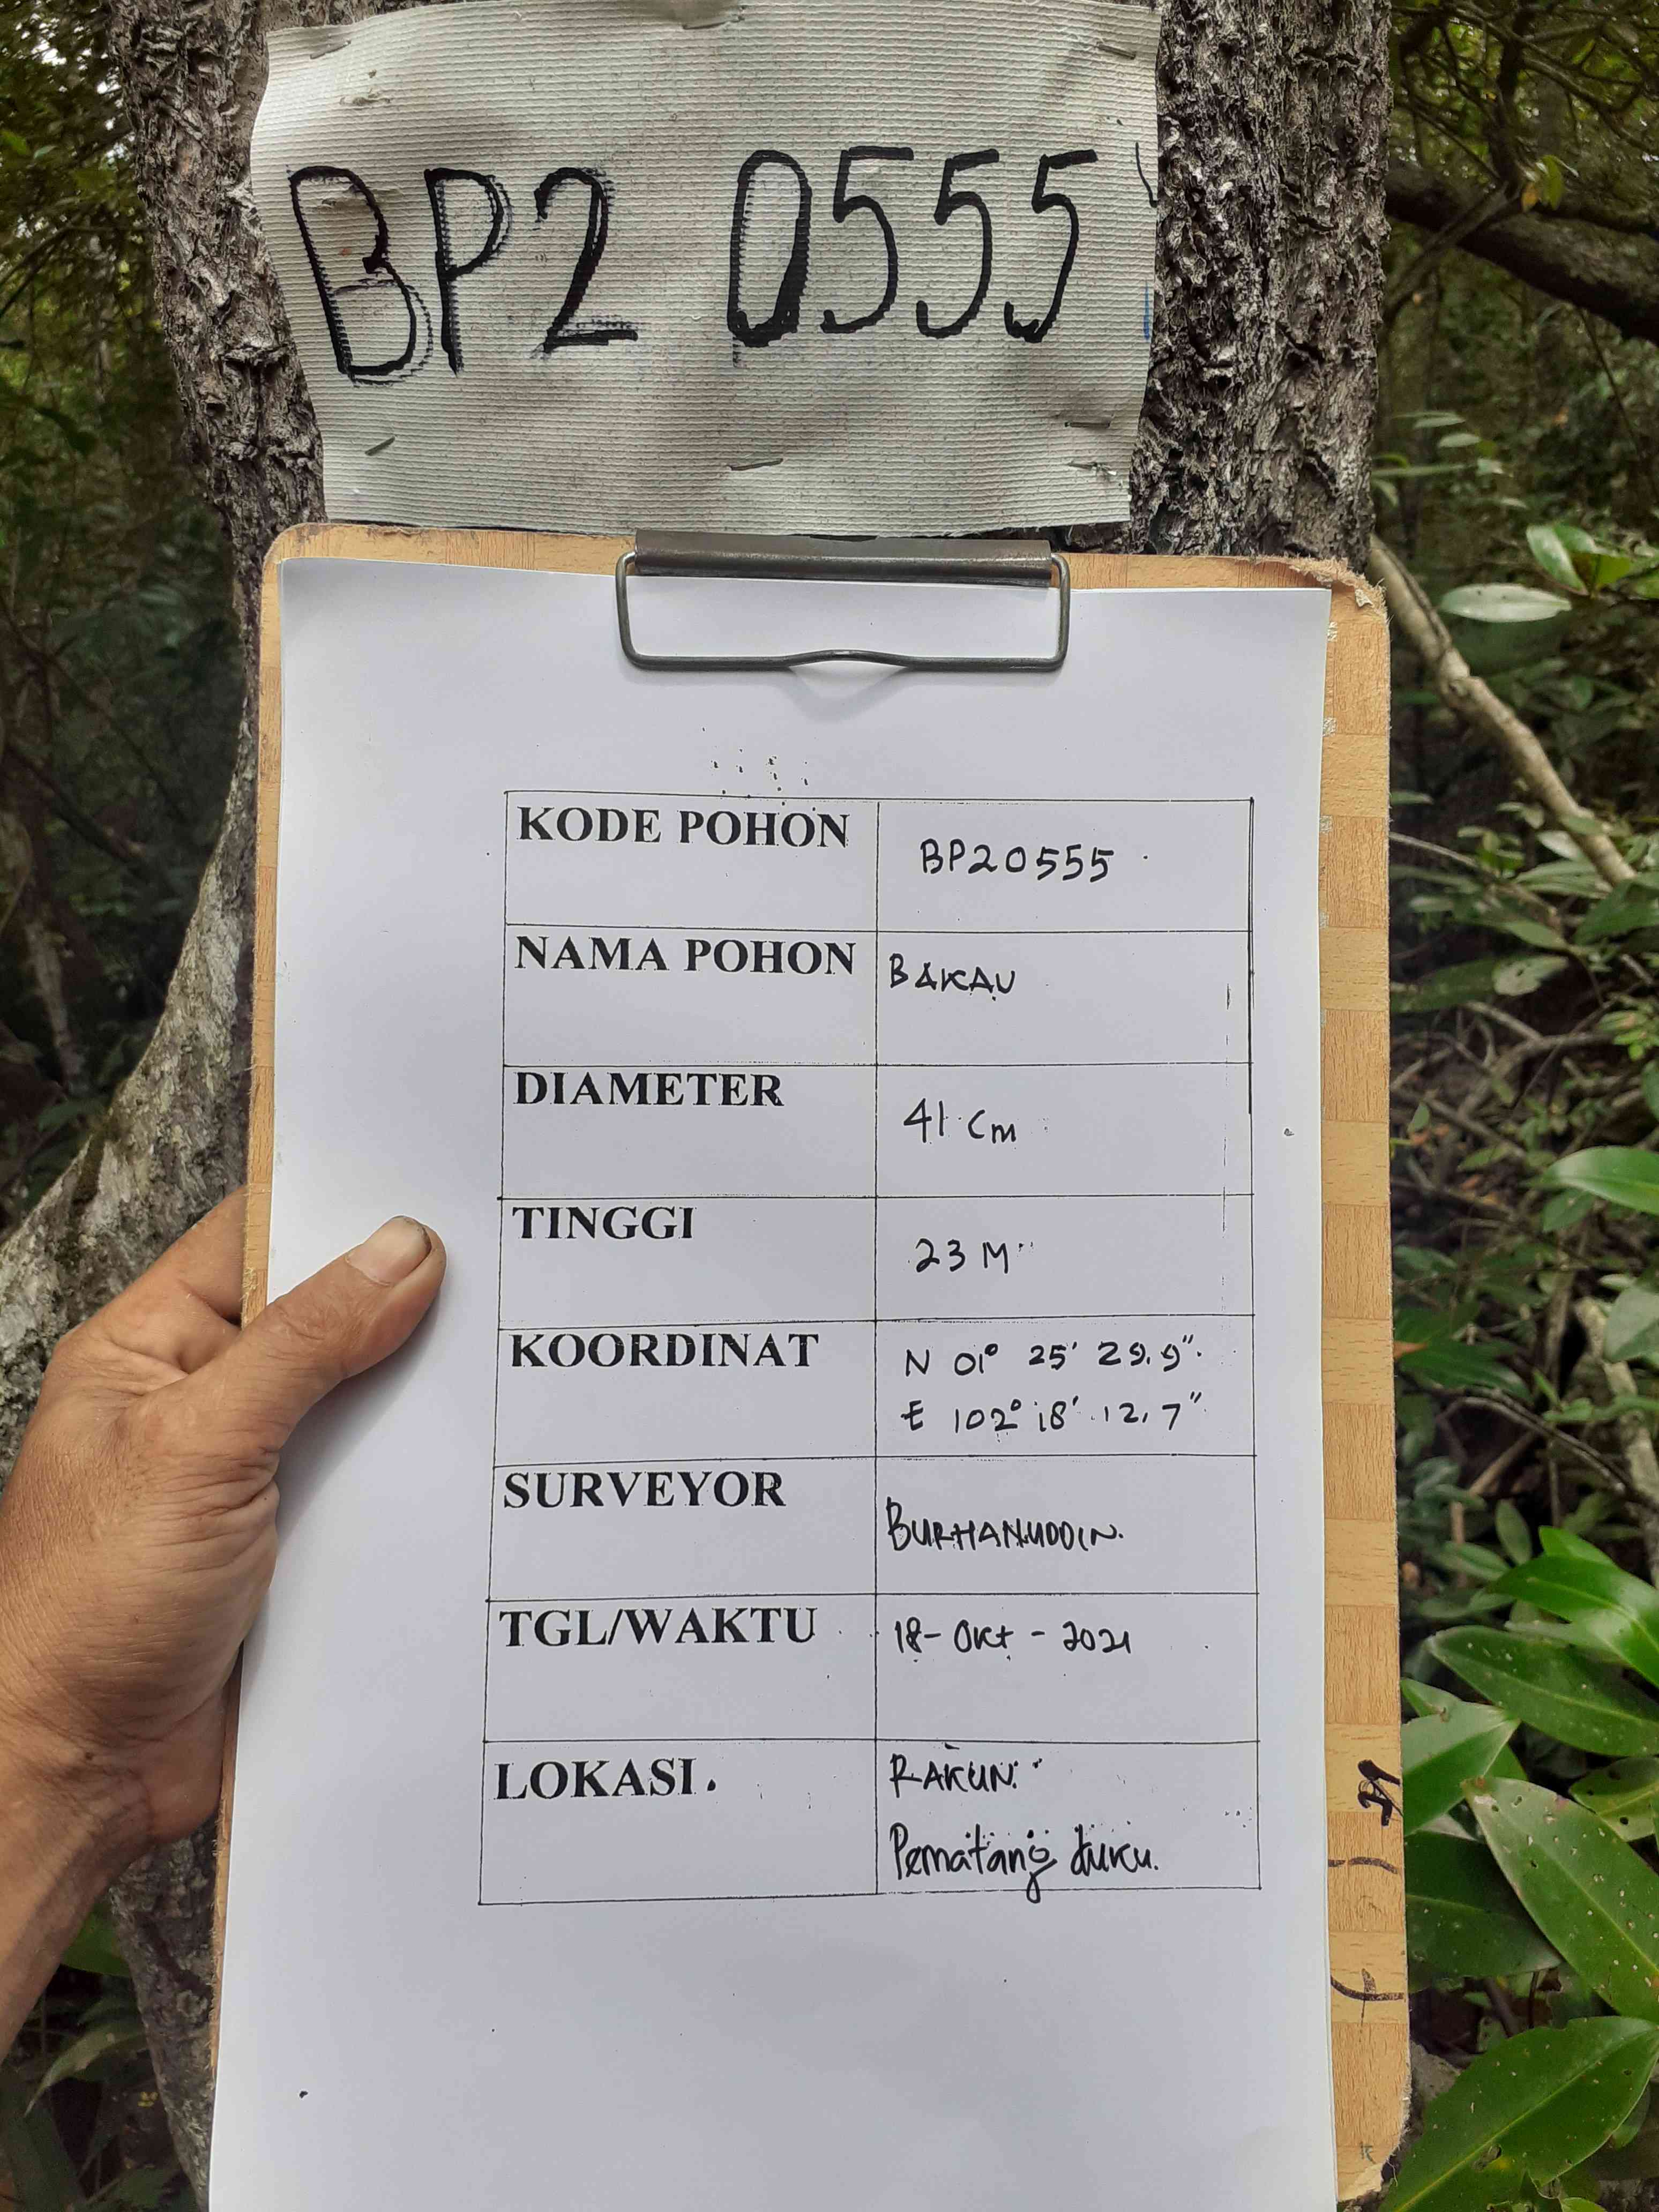 BP2 0555
KODE POHON BP20555
NAMA POHON BAKAU
DIAMETER 41 Cm
TINGGI 23 M
KOORDINAT N 01° 25' 29.9"
E 102° 18' 12,7"
SURVEYOR BURHANUDDIN.
TGL/WAKTU 18-Okt-2021
LOKASI. RAKUN.
Pematang duku.